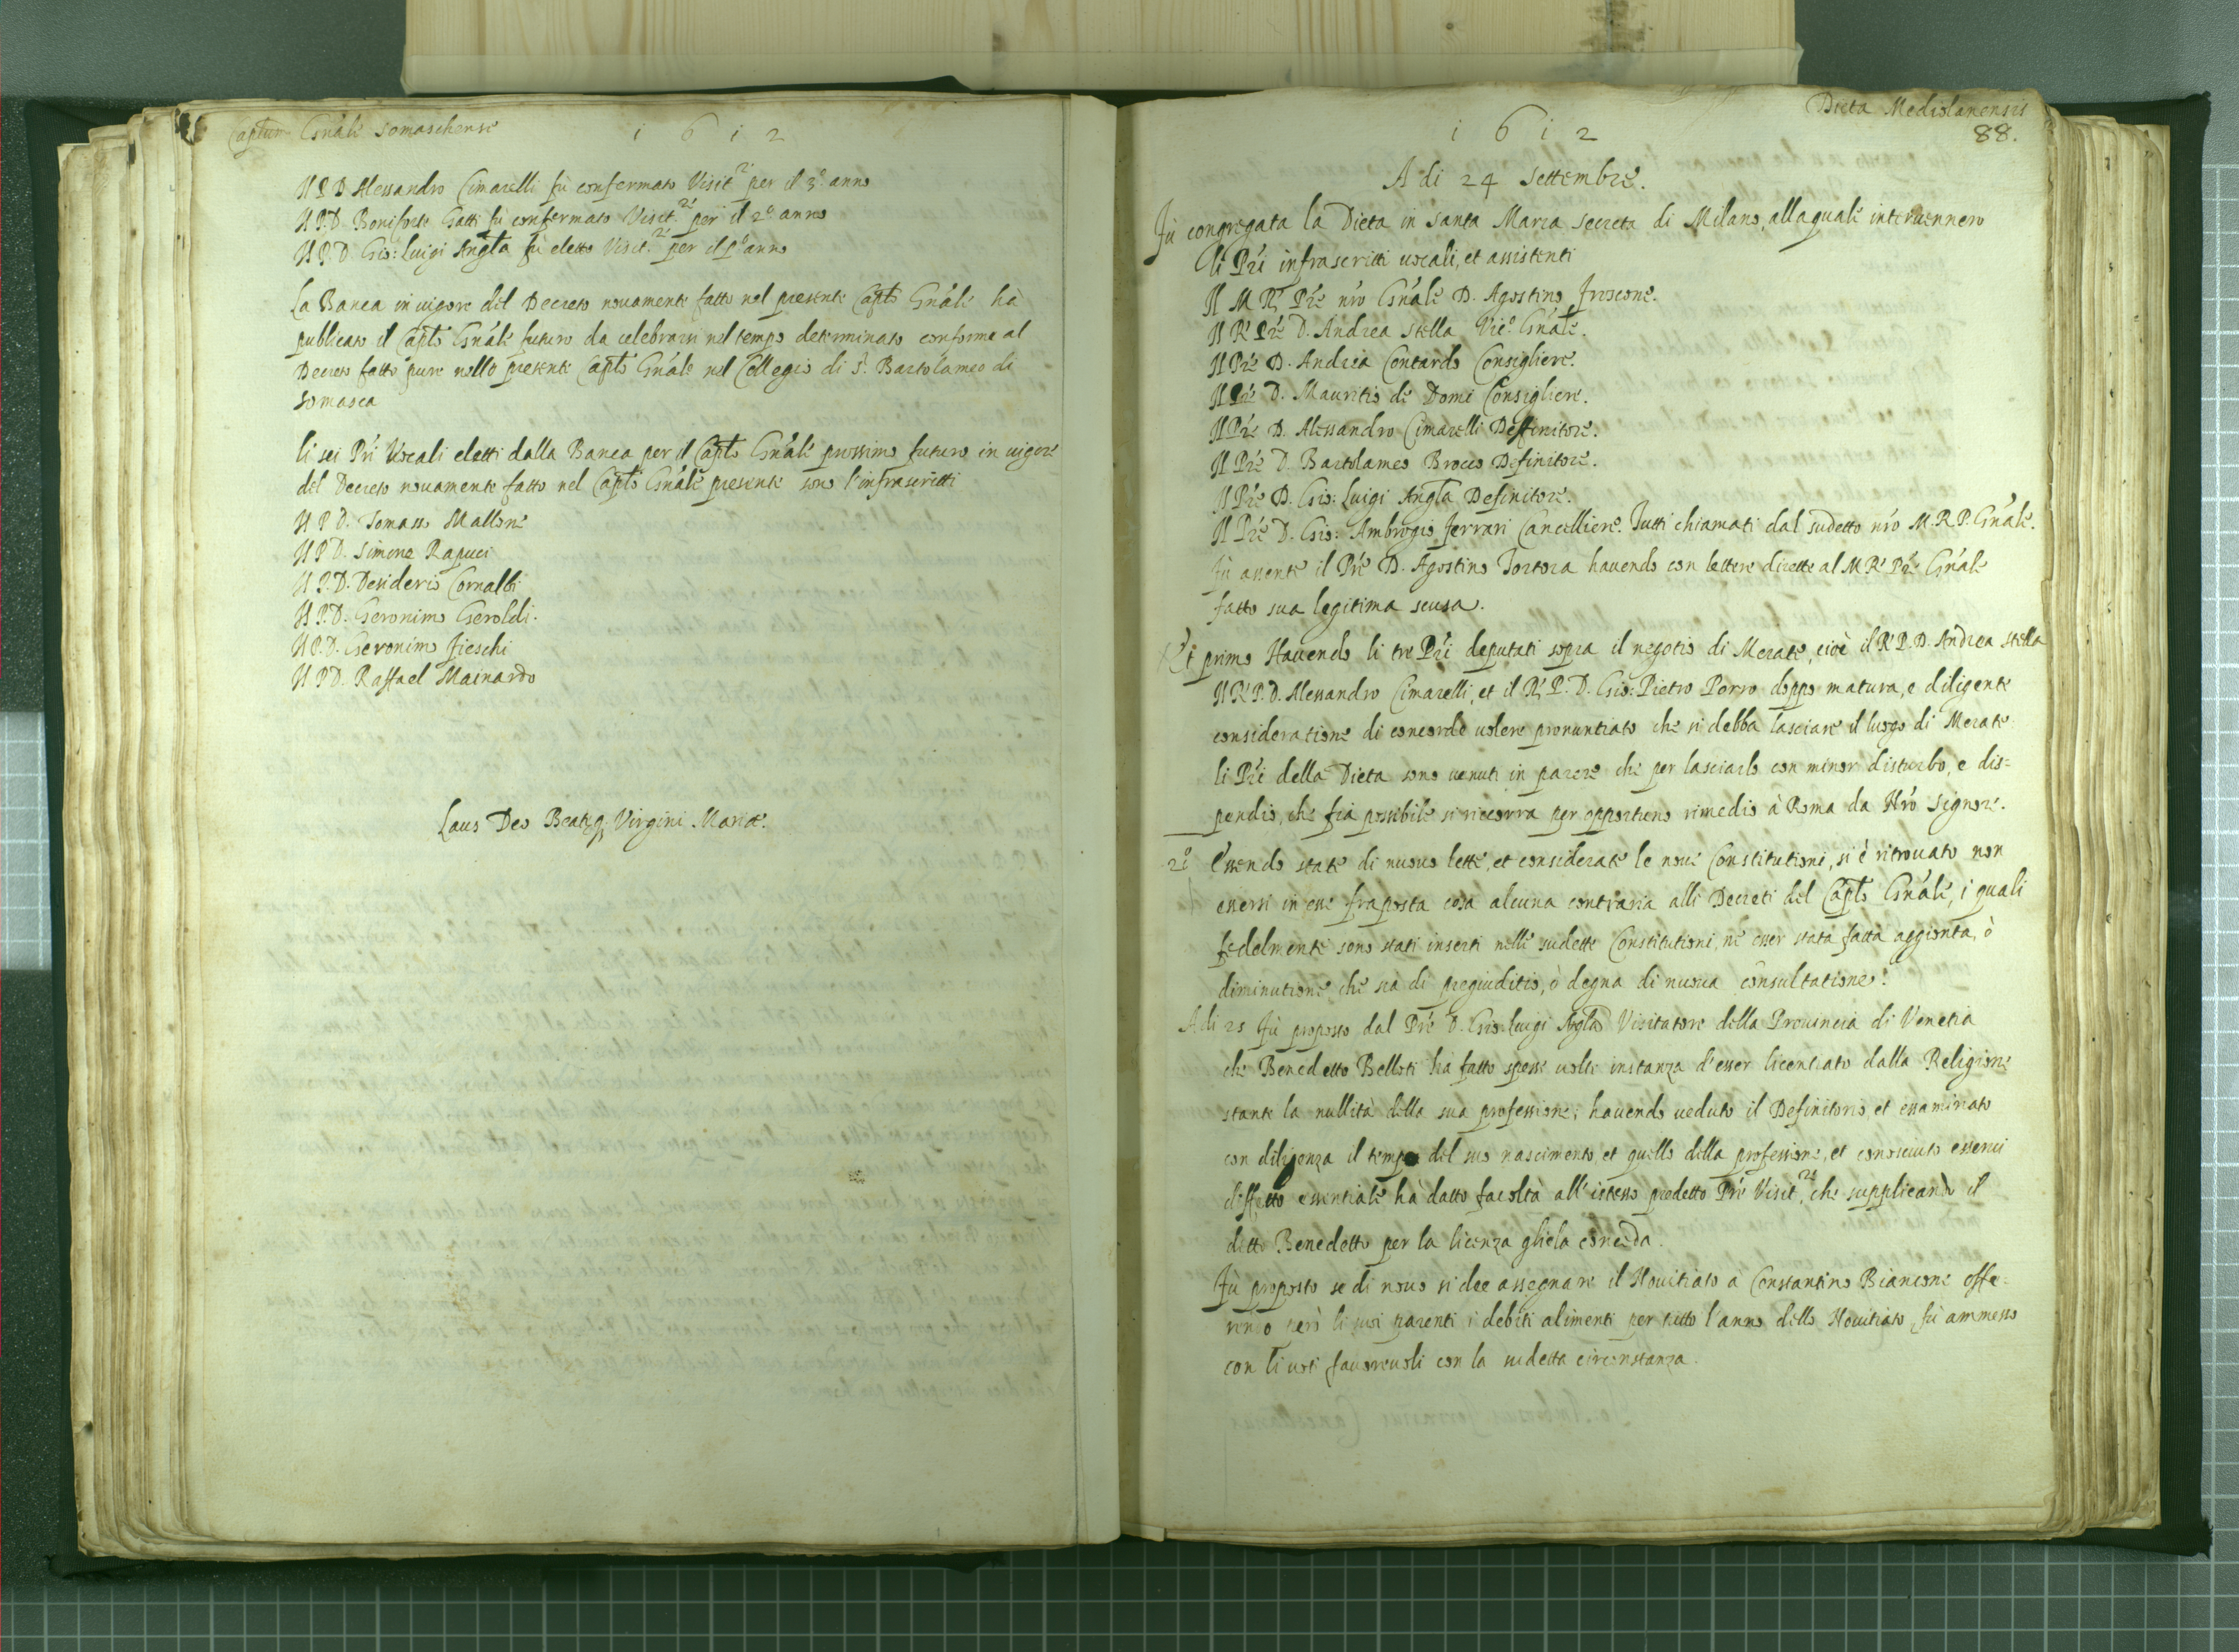 Captum Gnále Somaschense
1612
Il P. D. Alessandro Cimarelli fù confermato Visit.re per il 3.o anno
Il P. D. Boniforte Gatti fù confermato Visit.re per il 2.o anno
Il P. D. Gio: Luigi Angľa fu eletto Visit.re per il p.o anno
La Banca in vigore del Decreto novamente fatto nel presente Capľo Gnále hà
publicato il Capľo Gnále futuro da celebrarsi nel tempo determinato conforme al
Decreto fatto pure nello presente Capľo Gnále nel Collegio di S. Bartolameo di
Somasca
li sei Pri Vocali eletti dalla Banca per il Capľo Gnále prossimo futuro in vigore
del Decreto novamente fatto nel Capľo Gnále presente sono l'infrascritti
Il P. D. Tomaso Mallone
Il P. D. Simone Rapuci
Il P. D. Desiderio Cornalbi
Il P. D. Geronimo Geroldi.
Il P. D. Geronimo Fieschi
Il P. D. Raffael Mainardo
Laus Deo Beatæq; Virgini Mariæ.
Dieta Mediolanensis
1612
88.
A di 24 Settembre.
Fù congregata la Dieta in Santa Maria Secreta di Milano, alla quale intervennero
li Pri infrascritti vocali, et assistenti
Il M. R. Pre nro Gnále D. Agostino Froscone.
Il R. Pre D. Andrea Stella Vic.o Gnále.
Il Pre D. Andrea Contardo Consigliere.
Il Pre D. Mauritio de Domi Consigliere.
Il Pre D. Alessandro Cimarelli Deffinitore.
Il Pre D. Bartolameo Brocco Definitore.
Il Pre D. Gio: Luigi Angľa Definitore.
Il Pre D. Gio: Ambrogio Ferrari Cancelliere. Tutti chiamati dal sudetto nro M. R. P. Gnále.
Fù assente il Pre D. Agostino Tortora havendo con lettere dirette al M. R. Pre Gnále
fatto sua legitima scusa.
Et primo Havendo li tre Pri deputati sopra il negotio di Merate, cioè il R. P. D. Andrea Stella
Il R. P. D. Alessandro Cimarelli, et il R. P. D. Gio: Pietro Porro doppo matura, e diligente
consideratione di concorde volere pronuntiato che si debba lasciare il luogo di Merate
li Pri della Dieta sono venuti in parere che per lasciarlo con minor disturbo, e dis-
pendio, che sia possibile si ricorra per opportuno rimedio à Roma da Nro Signore.
2.o Essendo state di nuovo lette, et considerate le nove Constitutioni, si è ritrovato non
essersi in esse fraposta cosa alcuna contraria alli Decreti del Capľo Gnále, i quali
fedelmente sono stati inserti nelle sudette Constitutioni, nè esser stata fatta aggionta, ò
diminutione che sia di pregiuditio, ò degna di nuova consultatione.
A di 25 Fù proposto dal Pre D. Gio: Luigi Angľa Visitatore della Provincia di Venetia
che Benedetto Belloti hà fatto spesse volte instanza d'esser licentiato dalla Religione
stante la nullità della sua professione; havendo veduto il Definitorio, et essaminato
con diligenza il tempo del suo nascimento, et quello della professione, et conosciuto esservi
diffetto essentiale hà datto facoltà all'istesso predetto Pre Visit.re che supplicando il
detto Benedetto per la licenza gliela conceda.
Fù proposto se di novo si dee assegnare il Novitiato à Constantino Biancone offe-
rendo però li suoi parenti i debiti alimenti per tutto l'anno dello Novitiato, fù ammesso
con li voti favorevoli con la sudetta circonstanza.